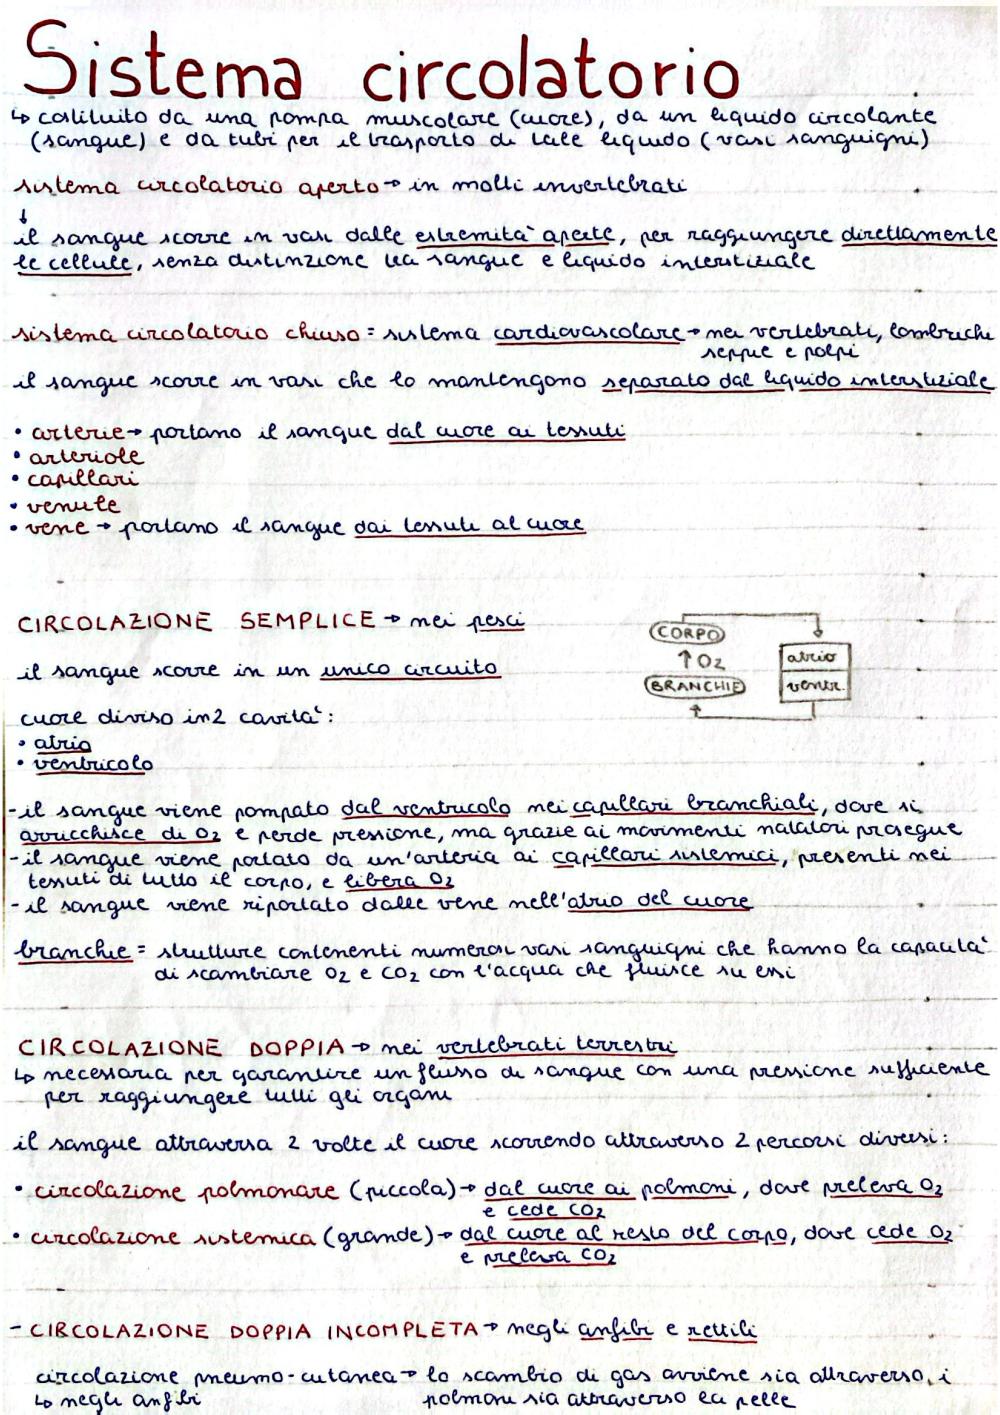 Sistema circolatorio
↳ costituito da una pompa muscolare (cuore), da un liquido circolante
(sangue) e da tubi per il trasporto di tale liquido (vasi sanguigni)
sistema circolatorio aperto → in molti invertebrati
↓
il sangue scorre in vasi dalle estremità aperte, per raggiungere direttamente
le cellule, senza distinzione tra sangue e liquido interstiziale
sistema circolatorio chiuso = sistema cardiovascolare → nei vertebrati, lombrichi
seppie e polpi
il sangue scorre in vasi che lo mantengono separato dal liquido interstiziale
• arterie → portano il sangue dal cuore ai tessuti
• arteriole
• capillari
• venule
• vene → portano il sangue dai tessuti al cuore
CIRCOLAZIONE SEMPLICE → nei pesci
CORPO
↑ O2
BRANCHIE
atrio
ventr.
il sangue scorre in un unico circuito
cuore diviso in 2 cavità:
• atrio
• ventricolo
- il sangue viene pompato dal ventricolo nei capillari branchiali, dove si
arricchisce di O2 e perde pressione, ma grazie ai movimenti natatori prosegue
- il sangue viene portato da un'arteria ai capillari sistemici, presenti nei
tessuti di tutto il corpo, e libera O2
- il sangue viene riportato dalle vene nell'atrio del cuore
branchie = strutture contenenti numerosi vasi sanguigni che hanno la capacità
di scambiare O2 e CO2 con l'acqua che fluisce su essi
CIRCOLAZIONE DOPPIA → nei vertebrati terrestri
↳ necessaria per garantire un flusso di sangue con una pressione sufficiente
per raggiungere tutti gli organi
il sangue attraversa 2 volte il cuore scorrendo attraverso 2 percorsi diversi:
• circolazione polmonare (piccola) → dal cuore ai polmoni, dove preleva O2
e cede CO2
• circolazione sistemica (grande) → dal cuore al resto del corpo, dove cede O2
e preleva CO2
- CIRCOLAZIONE DOPPIA INCOMPLETA → negli anfibi e rettili
circolazione pneumo-cutanea → lo scambio di gas avviene sia attraverso i
↳ negli anfibi polmoni sia attraverso la pelle